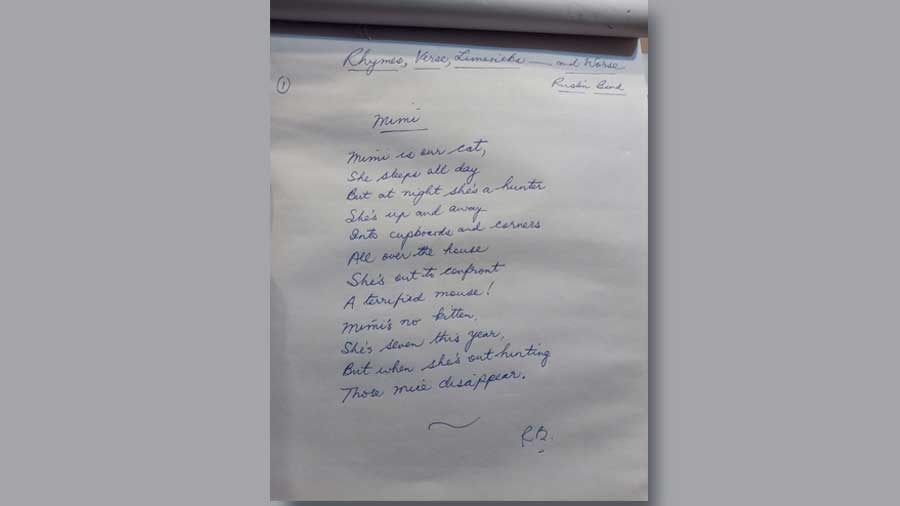 Rhymes, Verse, Limericks — and Worse
①
Mimi
Mimi is our cat,
She sleeps all day
But at night she's a hunter
She's up and away
Into cupboards and corners
All over the house
She's out to confront
A terrified mouse!
Mimi's no kitten,
She's seven this year,
But when she's out hunting
Those mice disappear.
R.B.